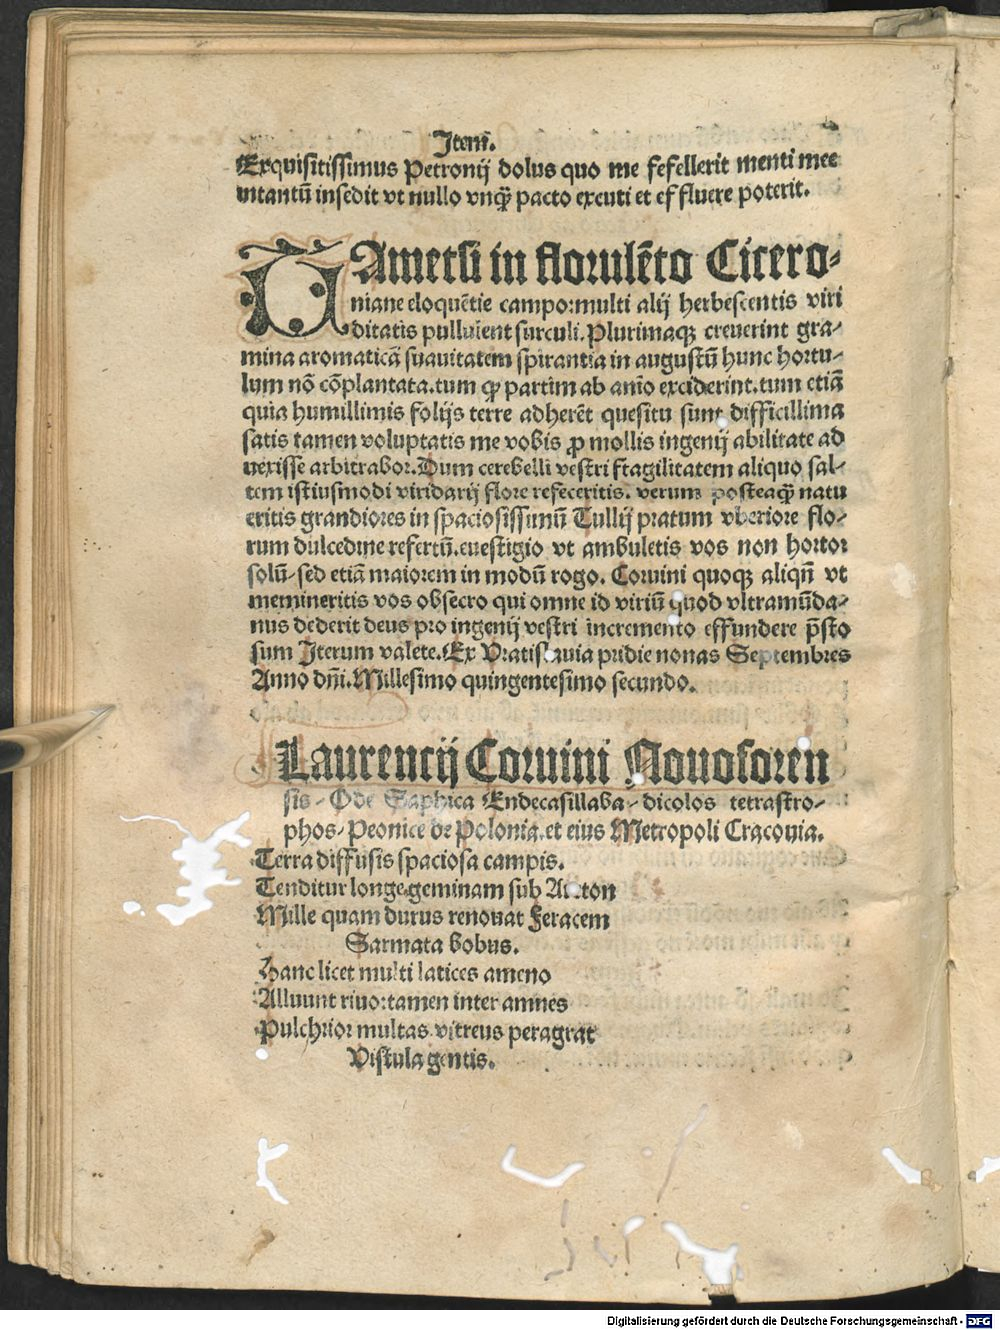 Item.
Exquisitissimus Petronij dolus quo me fefellerit menti mee
intantū insedit vt nullo vnqȝ pacto excuti et effluere poterit.
TAmetsi in florulēto Cicero-
niane eloquētie campo: multi alij herbescentis viri
ditatis pullulent surculi. Plurimaqȝ creuerint gra-
mina aromaticā suauitatem spirantia in augustū hunc hortu-
lum nō cōplantata. tum qꝙ partim ab aīo exciderint. tum etiā
quia humillimis folijs terre adherēt quesitu sunt difficillima
satis tamen voluptatis me vobis ꝓ mollis ingenij abilitate ad
uexisse arbitrabor. Dum cerebelli vestri fragilitatem aliquo sal-
tem istiusmodi viridarij flore refeceritis. verum posteaqȝ natu
eritis grandiores in spaciosissimū Tullij pratum vberiore flo-
rum dulcedine refertū. euestigio vt ambuletis vos non hortor
solū- sed etiā maiorem in modū rogo. Coruini quoqȝ aliqñ vt
memineritis vos obsecro qui omne id viriū quod vltramūda-
nus dederit deus pro ingenij vestri incremento effundere p̄sto
sum Iterum valete. Ex Vratislauia pridie nonas Septembres
Anno dñi. Millesimo quingentesimo secundo.
Laurencij Coruini Nouoforen
sis- Ode Saphica Endecasillaba- dicolos tetrastro-
phos- Peonice de Polonia. et eius Metropoli Cracouia.
Terra diffusis spaciosa campis.
Tenditur longe. geminam sub Arcton
Mille quam durus renouat Feracem
Sarmata bobus.
Hanc licet multi latices ameno
Alluunt riuo: tamen inter amnes
Pulchrior multas vitreus peragrat
Vistula gentis.
Digitalisierung gefördert durch die Deutsche Forschungsgemeinschaft - DFG